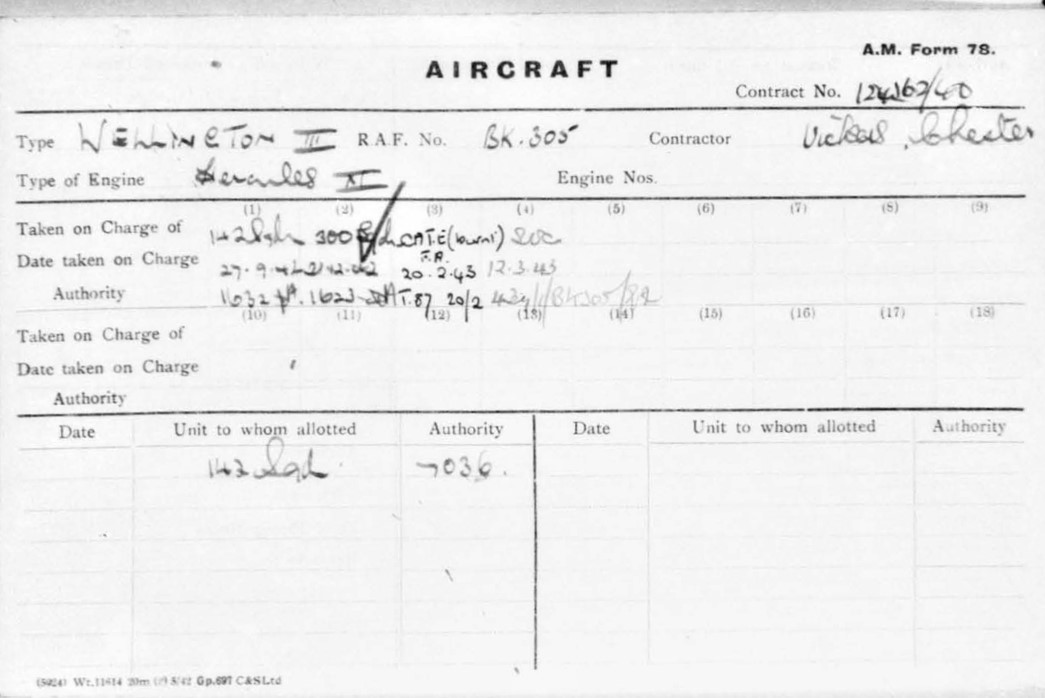 A.M. Form 78.
AIRCRAFT
Contract No. /40
Type WELLINGTON III R.A.F. No. BK.305 Contractor Vickers, Chester
Type of Engine Hercules XI Engine Nos.
(1) (2) (3) (4) (5) (6) (7) (8) (9)
Taken on Charge of 142 Sqdn 300 Sqdn CAT.E (burnt) SOC
F.A.
Date taken on Charge 27.9.42 20.2.43 12.3.43
Authority 1632 1623 AT.87 20/2
(10) (11) (12) (13) (14) (15) (16) (17) (18)
Taken on Charge of
Date taken on Charge
Authority
Date Unit to whom allotted Authority Date Unit to whom allotted Authority
142 Sqd 7036.
(5924) Wt.11614 20m 5/42 Gp.697 C&SLtd